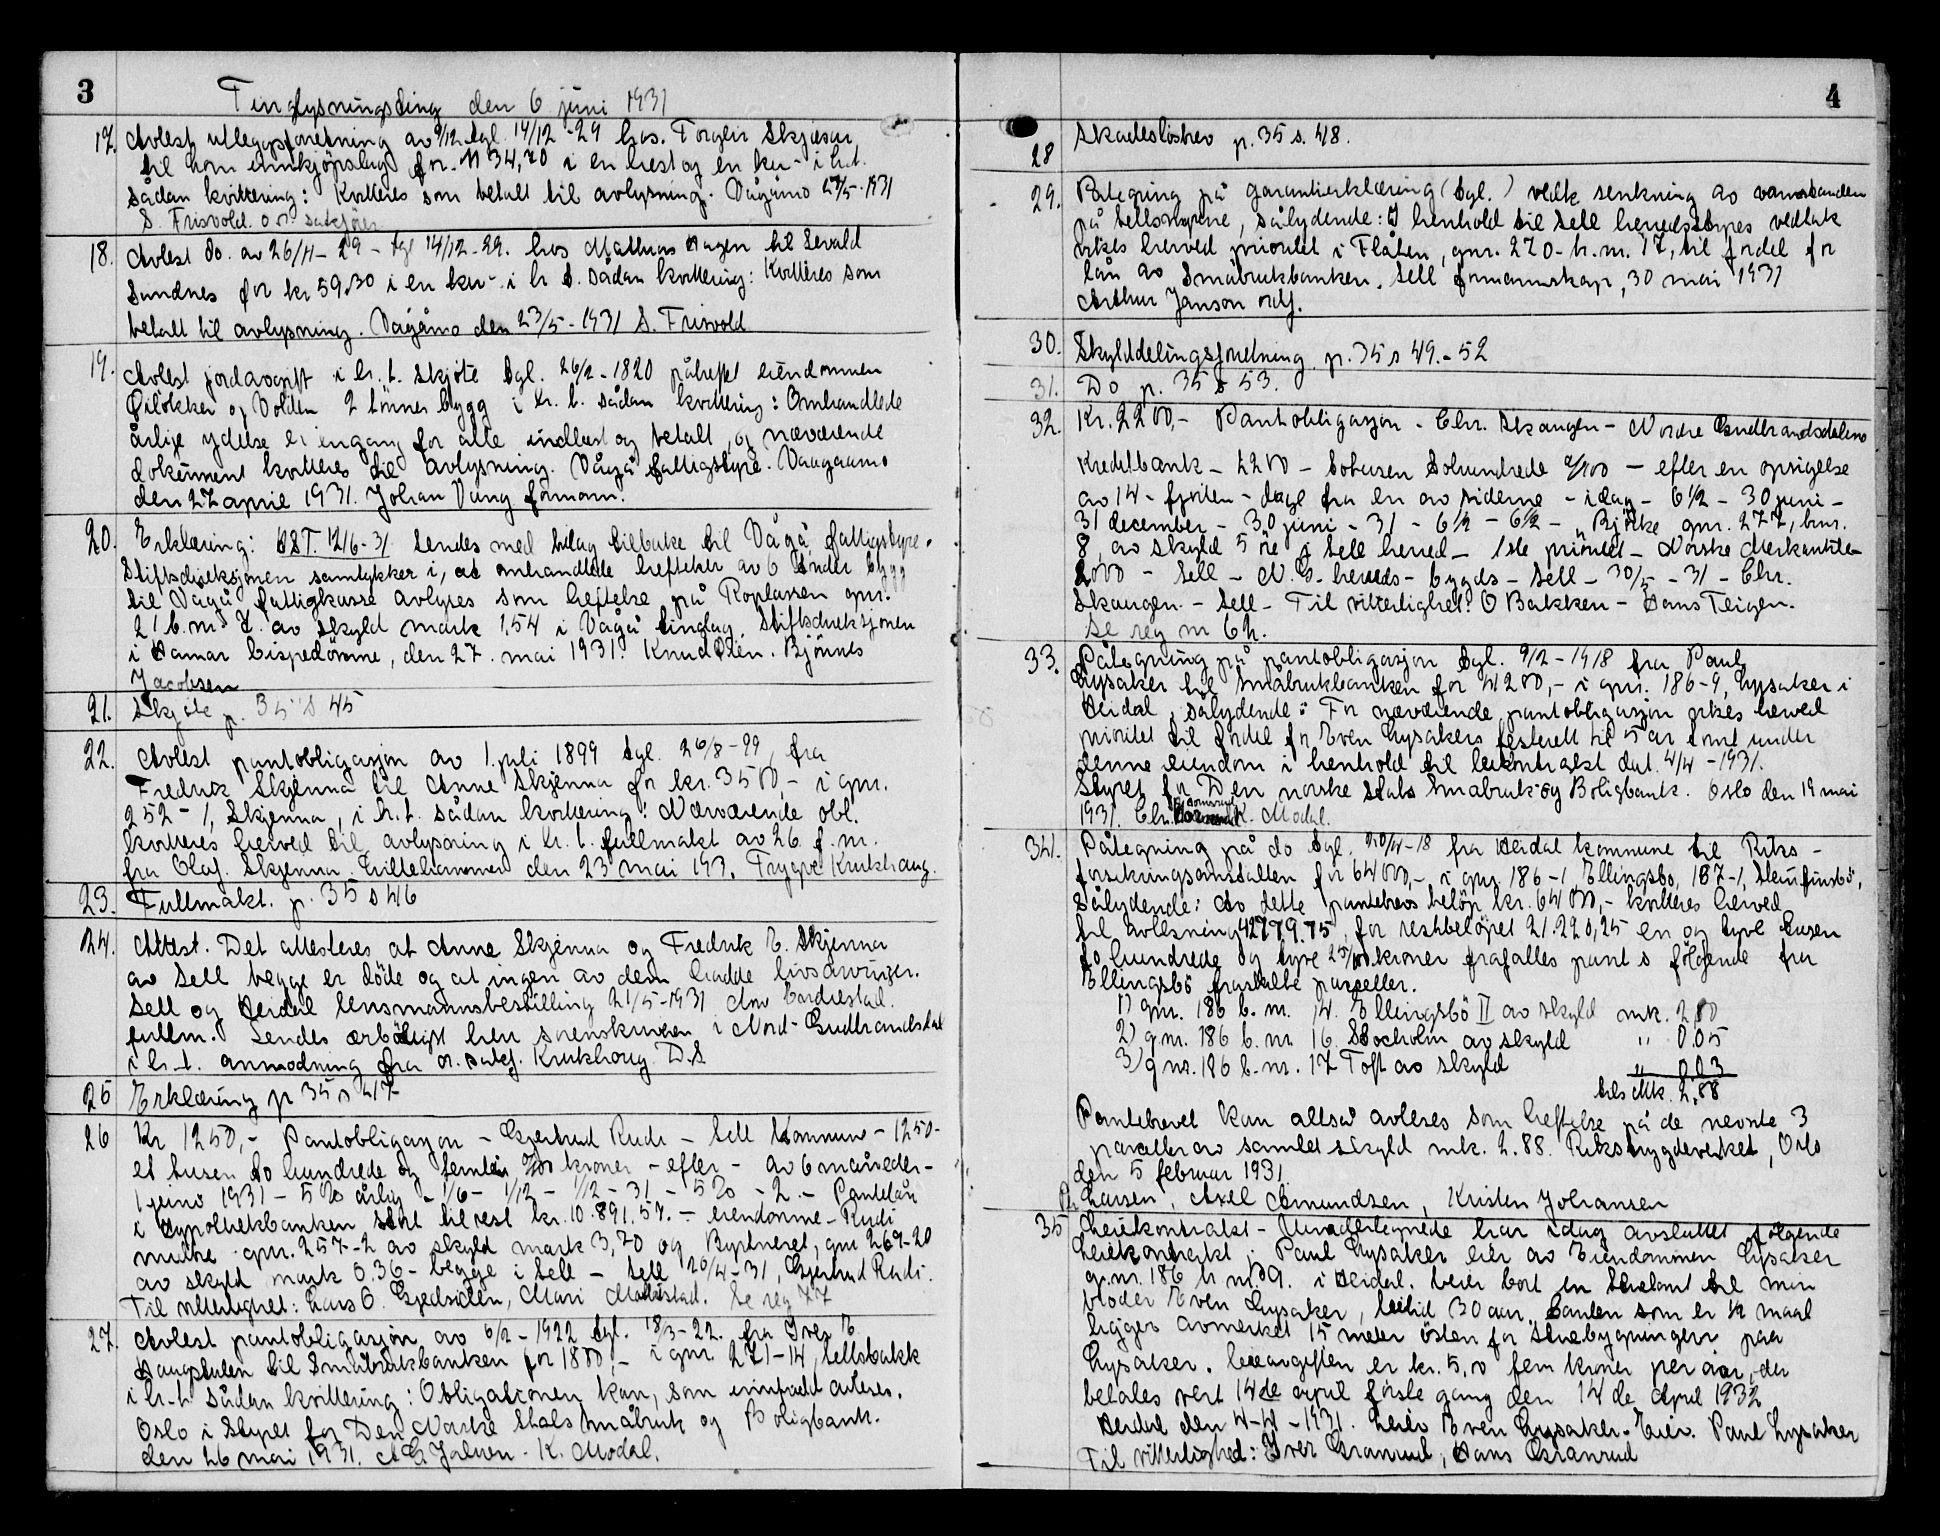 3
Tinglysningsding den 6 juni 1931
17. Avlest utleggsforretning av 9/12 tgl. 14/12-29 hos. Torgeir Skjesar
til hom innkjöpslag for 34,70 i en hest og en ku - i h.t.
sådan kvittering: Kvitteres som betalt til avlysning. Vågåmo 27/5-1931
S. Frisvold. o.r. sakförer
18. Avlest do. av 26/11-29 - tgl 14/12-29. hos Mathias Hagen til Sevald
Sundnes for kr 59.30 i en ku - i h t. sådan kvittering: Kvitteres som
betalt til avlysning. Vågåmo den 23/5-1931 S. Frisvold
19. Avlest jordavgift i h. t. skjöte tgl. 26/2-1820 påheftet eiendommen
og Volden 2 tönner bygg i h. t. sådan kvittering: Omhandlede
årlige ydelse er engang for alle innlöst og betalt, og nærværende
dokument kvitteres til avlysning. Vågå fattigstyre. Vaagaamo
den 27 april 1931. Johan Vang formann.
20. Erklæring: OST. 12/6-31 Sendes med bilag tilbake til Vågå fattigstyre.
Stiftsdireksjonen samtykker i, at omhandlede heftelser av 6 tönder bygg
til Vågå fattigkasse avlyses som heftelse på Roplassen gnr.
21 b.nr 7. av skyld mark 1,54 i Vågå tinglag. Stiftsdireksjonen
i Hamar bispedömme, den 27. mai 1931. Knud Öien. Bjönnes
Jacobsen
21. Skjöte p. 35 s 45
22. Avlest pantobligasjon av 1. juli 1899 tgl. 26/8-99, fra
Fredrik Skjenna til Anne Skjenna for kr. 3500,- i gnr.
252-1, Skjenna, i h.t. sådan kvittering: Nærværende obl.
kvitteres herved til avlysning i h. t. fullmakt av 26. f. m.
fra Olaf Skjenna. Lillehammer den 23 mai 193. Trygve Krukhaug.
23. Fullmakt. p. 35 s 46
24. Attest. Det attesteres at Anne Skjenna og Fredrik E. Skjenna
av Sell begge er döde og at ingen av dem hadde livsarvinger.
Sell og Heidal lensmannsbestilling 21/5-1931
fullm. Sendes ærbödigst herr sorenskriveren i Nord-Gudbrandsdal
i h. t. anmodning fra o.r. sakf. Krukhoug D.S
25 Erklæring p 35 s 47
26 Kr 1250,- Pantobligasjon - Gjertrud Rudi - Sell Kommune - 1250-
et tusen to hundrede og femten 0/00 kroner - efter - av 6 måneder-
1 juni 1931 - 5 % årlig - 1/6 - 1/12 - 1/12 - 31 - 5 % - 2. - Pantelån
i Hypothekbanken stort til rest kr. 10.891.57. - eiendomme - Rudi
gnr. 257-2 av skyld mark 3,70 og gnr 267-20
av skyld mark 0.36 - begge i Sell - Sell 26/4-31, Gjertrud Rudi.
Til vitterlighet: Lars O. Mari Se reg 77
27. Avlest pantobligasjon av 6/2-1922 tgl. 18/3-22. fra Iver E
Haugstulen til Småbrukbanken for 1800,- i gnr. 271-14, Sellsbakk
i h-t. sådan kvittering: Obligationen kan, som innfridd avleses.
Oslo i Styret for Den Norske Stats Småbruk og Boligbank.
den 26 mai 1931. K. Modal.
4
28 Skadeslösbrev p. 35 s. 48.
29. Påtegning på garantierklæring (tgl. ) vedk senkning av vannstanden
på Sellsmyrene, sålydende: I henhold til Sell herredsstyres vedtak
vikes herved prioritet i Flåten, gnr. 270-b.nr. 17, til fordel for
lån av Småbrukbanken. Sell formannskap, 30 mai 1931
Arthur Janson ordf.
30. Skylddelingsforretning p. 35 s 49.-52
31. Do p. 35 s 53.
32. Kr. 2200,- Pantobligasjon - Chr. Skaugen - Nordre Gudbrandsdalens
Kreditbank - 2200 - Totusen tohundrede 0/100 - efter en opsigelse
av 14 - fjorten - dage fra en av siderne - idag - 6 1/2 - 30 juni -
31 december - 30 juni - 31 - 6 1/2 - 6 1/2 - Björke gnr. 277, bnr.
8, av skyld 5 öre i Sell herred - 1ste prioritet - Norske Merkantile
2000 - Sell - N. G. - herreds - bygds - Sell - 30/5 - 31 - Chr.
Skaugen - Sell - Til vitterlighet: O Bakken - Hans Teigen.
Se reg nr 64.
33. Påtegning på pantobligasjon tgl. 9/2-1918 fra Paul
Lysaker til Småbrukbanken for 4200,- i gnr. 186-9, Lysaker i
Heidal, sålydende: For nærværende pantobligasjon vikes herved
prioritet til fordel for Even Lysakers festerett til 5 ar tomt under
denne eiendom i henhold til leikontrakt dat. 4/4-1931.
Styret for Den norske Stats Småbruk og Boligbank. Oslo den 19 mai
1931. Chr. K. Modal.
34. Påtegning på do tgl. 20/4-18 fra Heidal kommune til Riks-
forsikringsanstalten for 64000,- i gnr 186-1, Ellingsbo, 187-1, Steinfinsbö,
Sålydende: Av dette pantebrevs belöp kr. 64000,- kvitteres herved
til avlesning 42779.75, for restbelöpet 21.220,25 en og tyve tusen
to hundrede og tyve 25/100 kroner frafalles pant i fölgende fra
Ellingsbö fraskilte parseller.
1) gnr. 186 b. nr. 14. Ellingsbö II av skyld mk. 2,80
2) g.nr. 186 b. nr 16. Stocholm av skyld " 0.05
3) g nr. 186 b. nr. 17 Toft av skyld " 0.03
tils Mk. 2,88
Pantebrevet kan altså avleses som heftelse på de nevnte 3
parseller av samlet skyld mk. 2.88. Rikstrygdeverket, Oslo
den 5 februar 1931.
Larsen, Axel Amundsen, Kristen Johansen
35 Leiekontrakt - Undertegnede har idag avsluttet fölgende
leiekontrakt: Paul Lysaker eier av Eiendommen Lysaker
g.nr. 186 b nr. 9. i Heidal. leier bort en til min
broder Even Lysaker, leietid 30 aar. Tomten som er 1/2 maal
ligger avmerket 15 meter östen for Stuebygningen paa
Lysaker. leieavgiften er kr. 5,00 fem kroner per aar, der
betales vert 14de april förste gang den 14 de April 1932
Heidal den 4-4-1931. Leier Even Lysaker. Eier. Paul Lysaker
Til vitterlighed: Iver Granrud, Hans Granrud